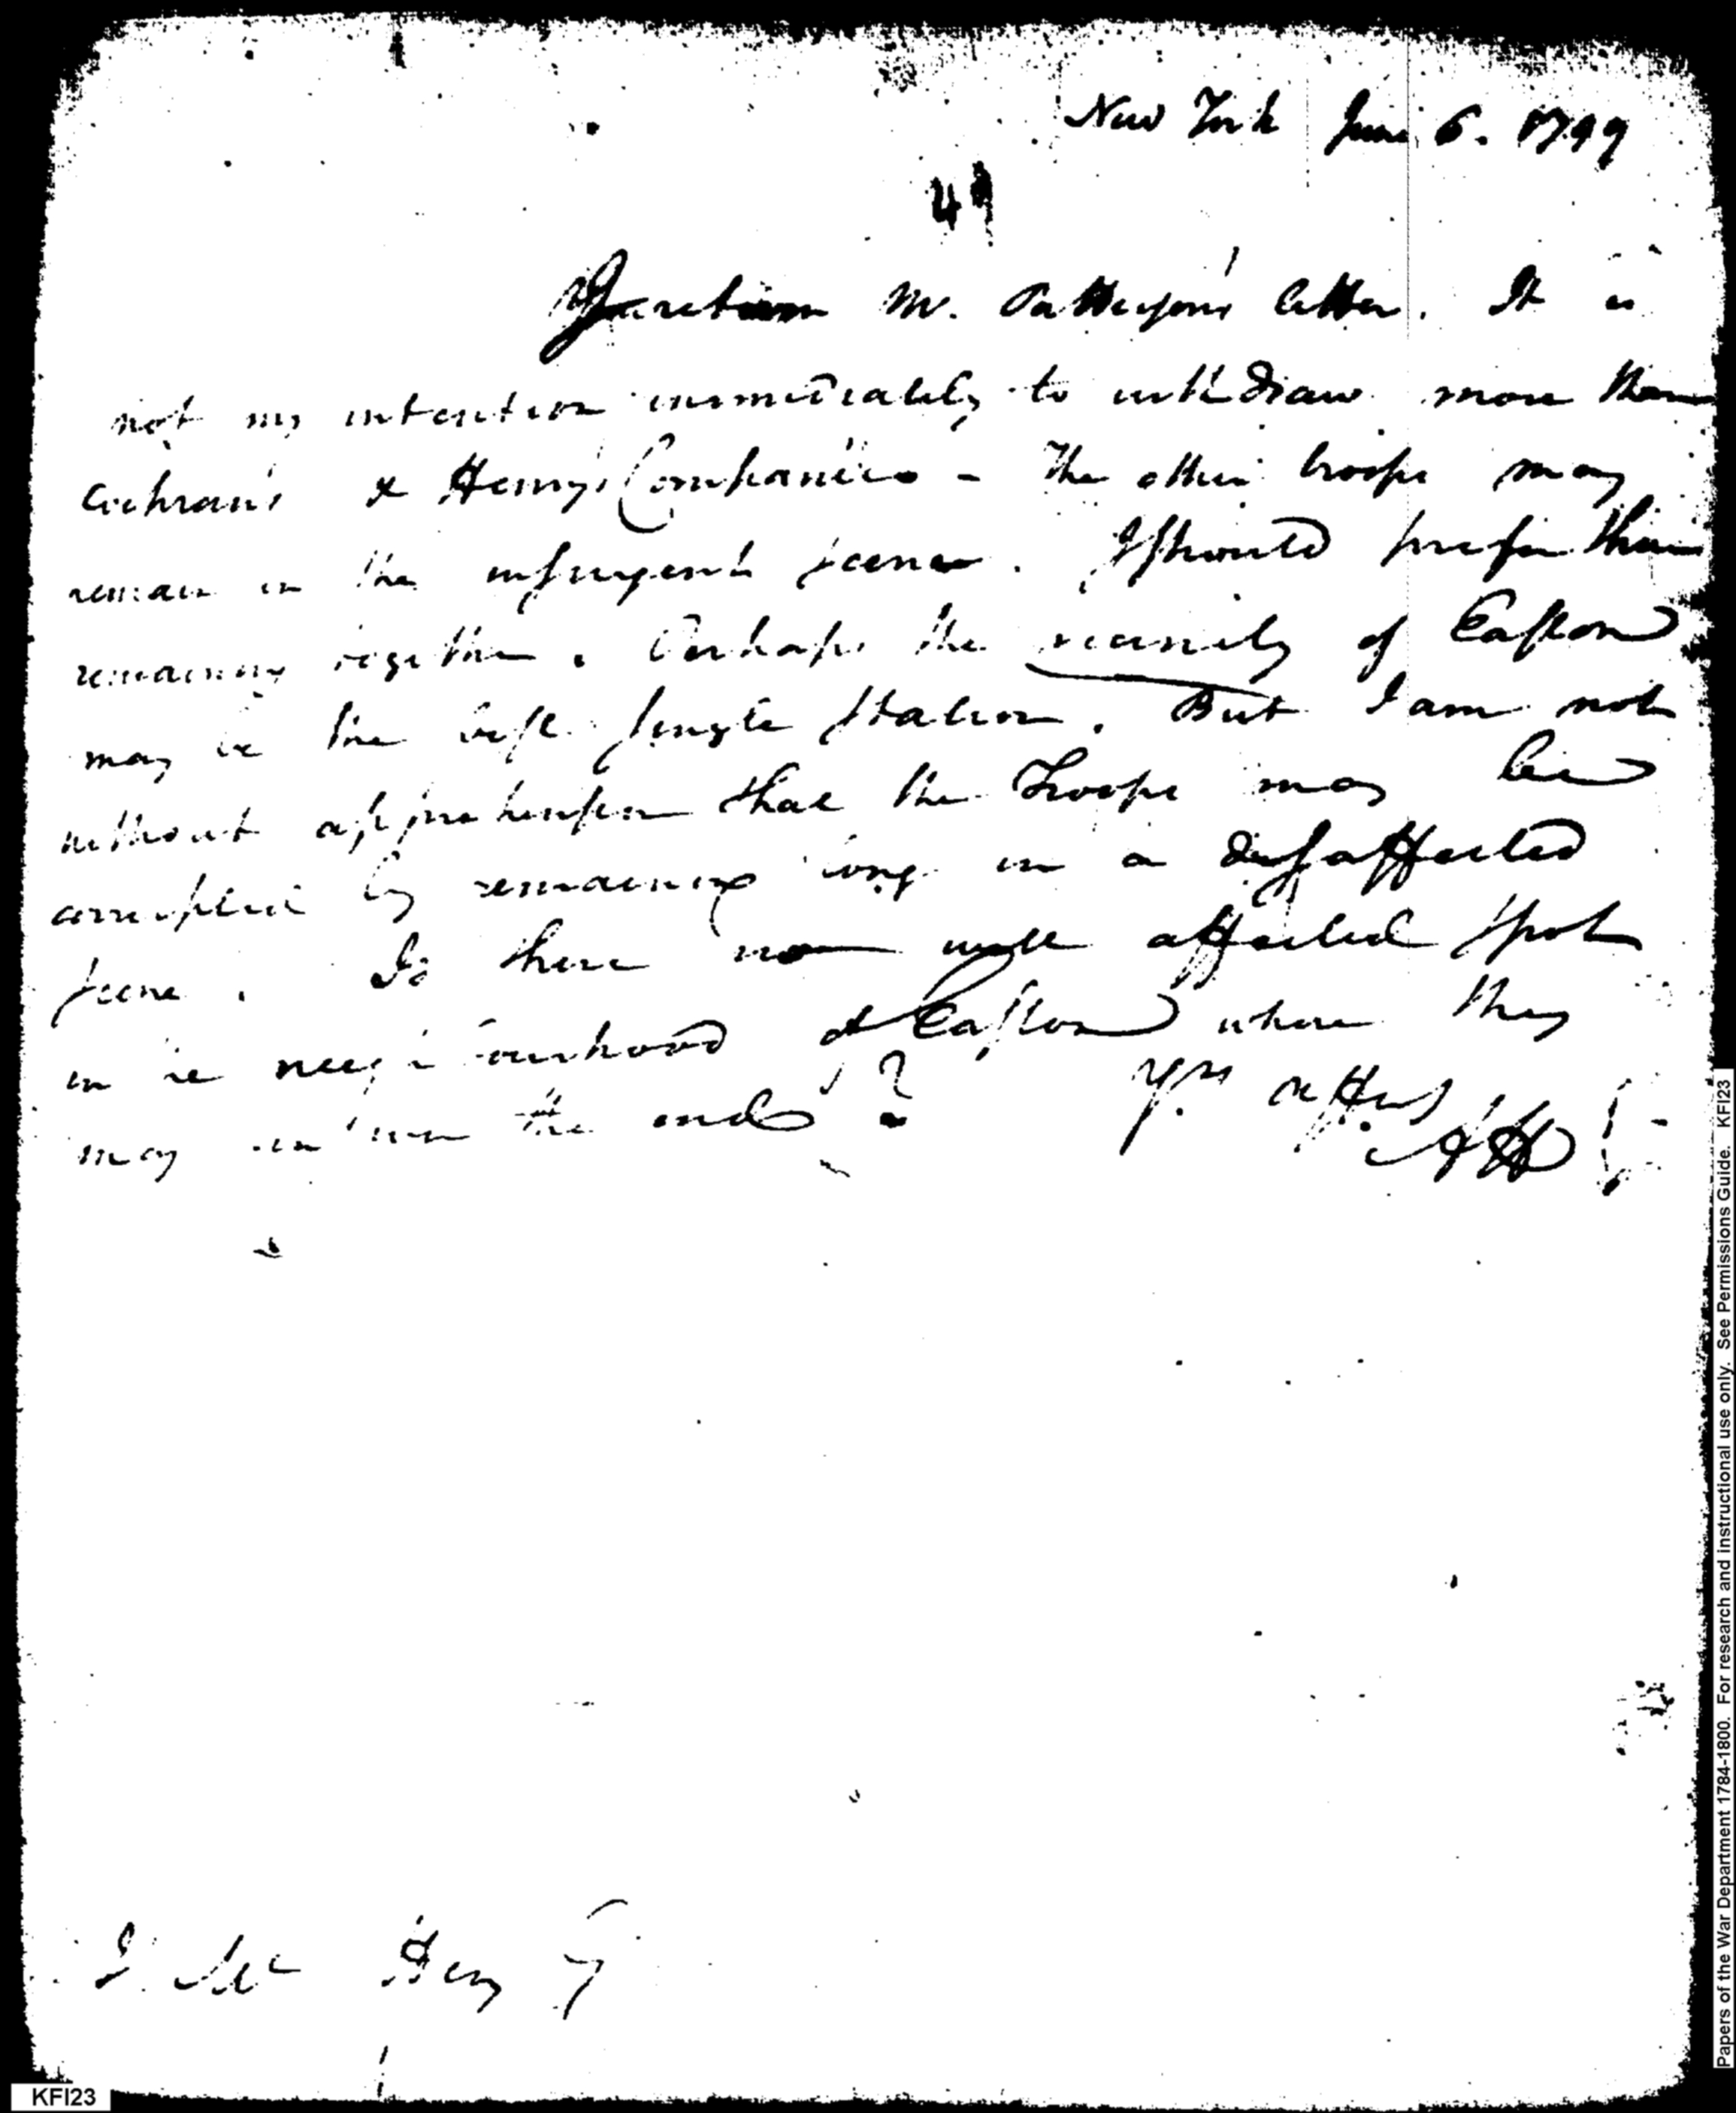 New York June 6. 1799
I return Mr. Patterson's letter. It is
not my intention immediately to withdraw more than
Cochran's & Henry's Companies - The other troops may
remain in the insurgent scene. I should prefer their
remaining together. Perhaps the vicinity of Easton
may be the best single station. But I am not
without apprehension that the Troops may be
corrupted by remaining long in a disaffected
scene. Is there no well affected spot
in the neighbourhood of Easton where they
may answer the end?
Yrs. Affecy
AH
J. Mc Henry
KFI23
Papers of the War Department 1784-1800. For research and instructional use only. See Permissions Guide. KFI23